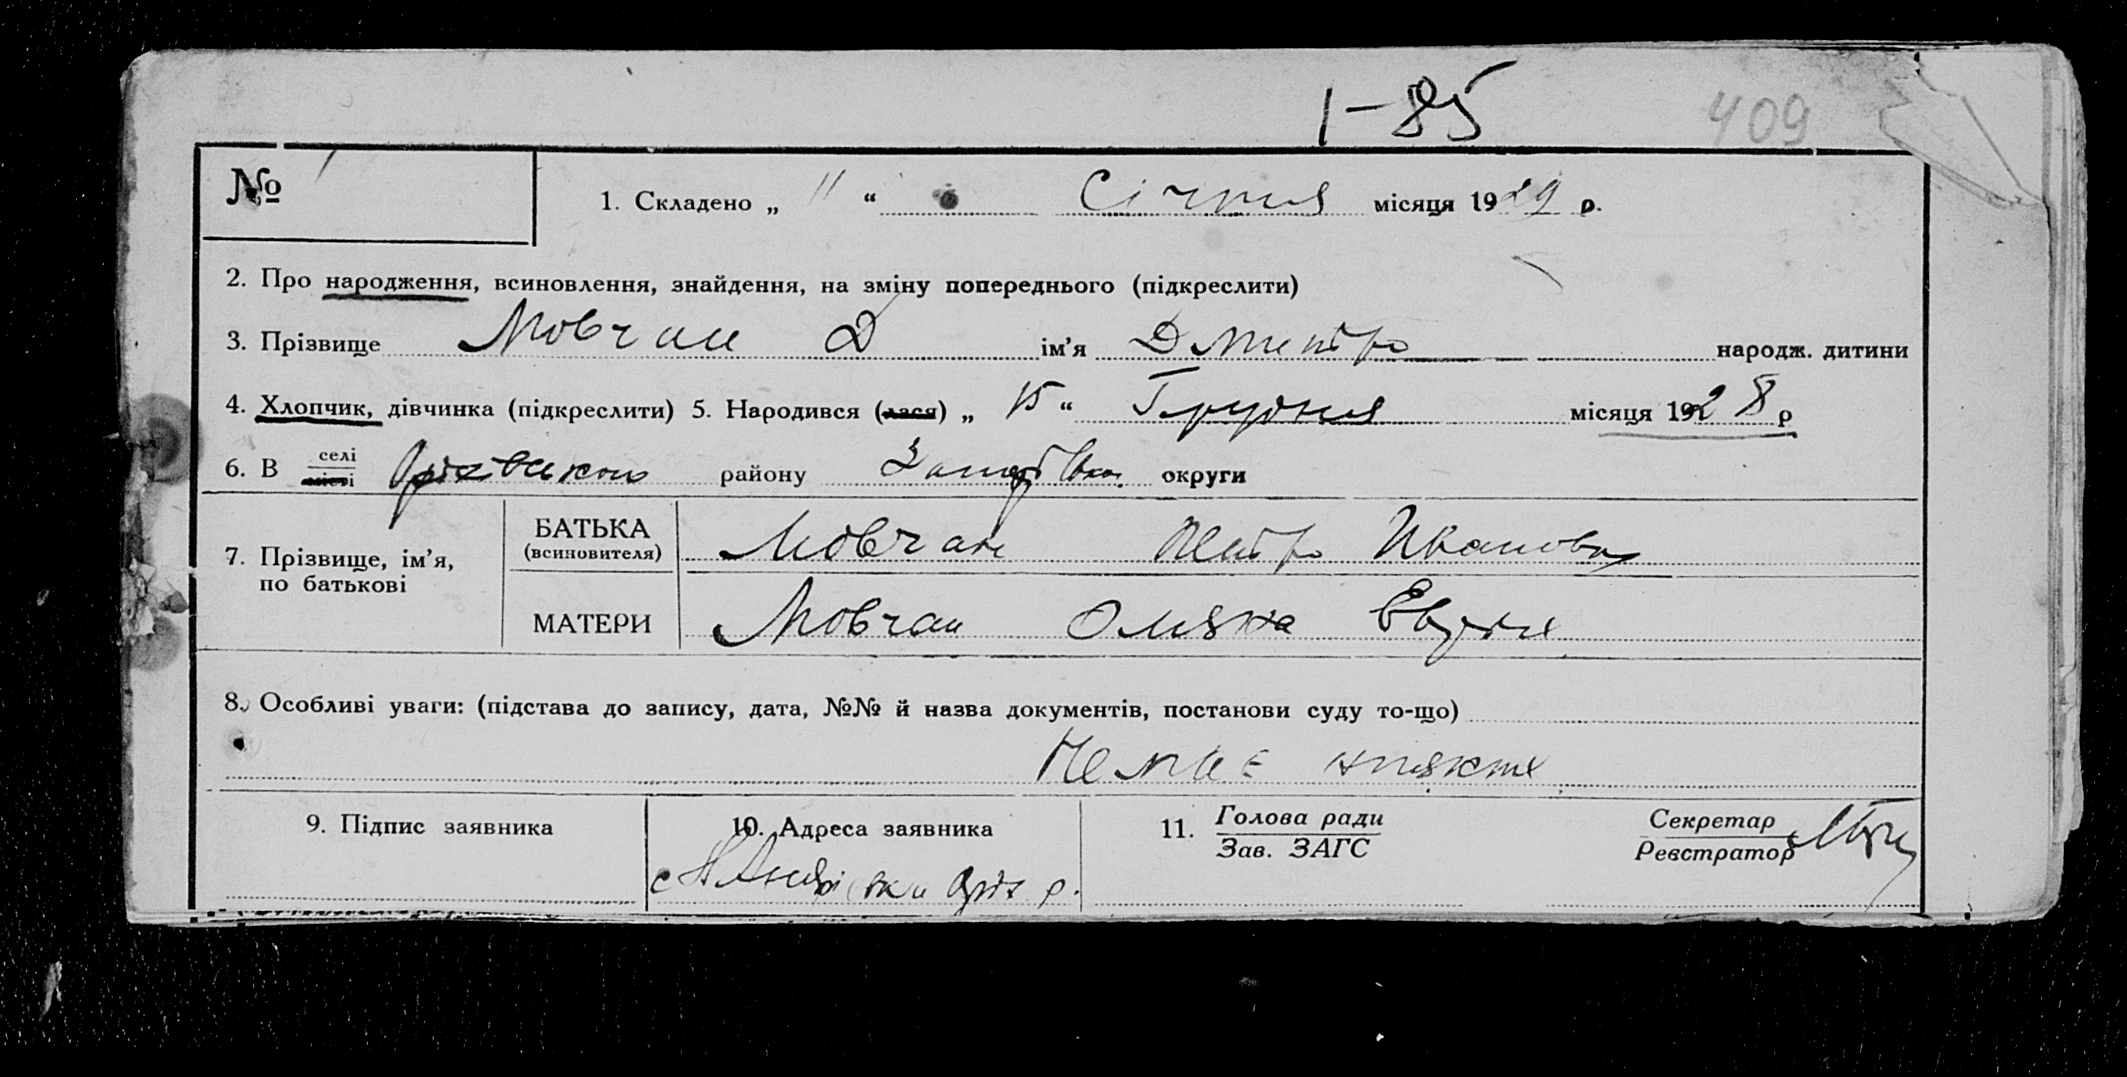 1-85
409
№ 1
1. Складено „ 11 “ Січня місяця 1929 р.
2. Про народження, всиновлення, знайдення, на зміну попереднього (підкреслити)
3. Прізвище Мовчан Д ім’я Дмитро народж. дитини
4. Хлопчик, дівчинка (підкреслити) 5. Народився (лася) „ 15 “ Грудня місяця 1928 р
6. В селі місті Оріхівського району Запоріжськ. округи
7. Прізвище, ім’я, по батькові
БАТЬКА (всиновителя) Мовчан Петро Иванович
МАТЕРИ Мовчан Омяна
8. Особливі уваги: (підстава до запису, дата, №№ й назва документів, постанови суду то-що)
Немає ніяких
9. Підпис заявника
10. Адреса заявника
11. Голова ради
Зав. ЗАГС
Секретар
Реєстратор
с Оріх р.